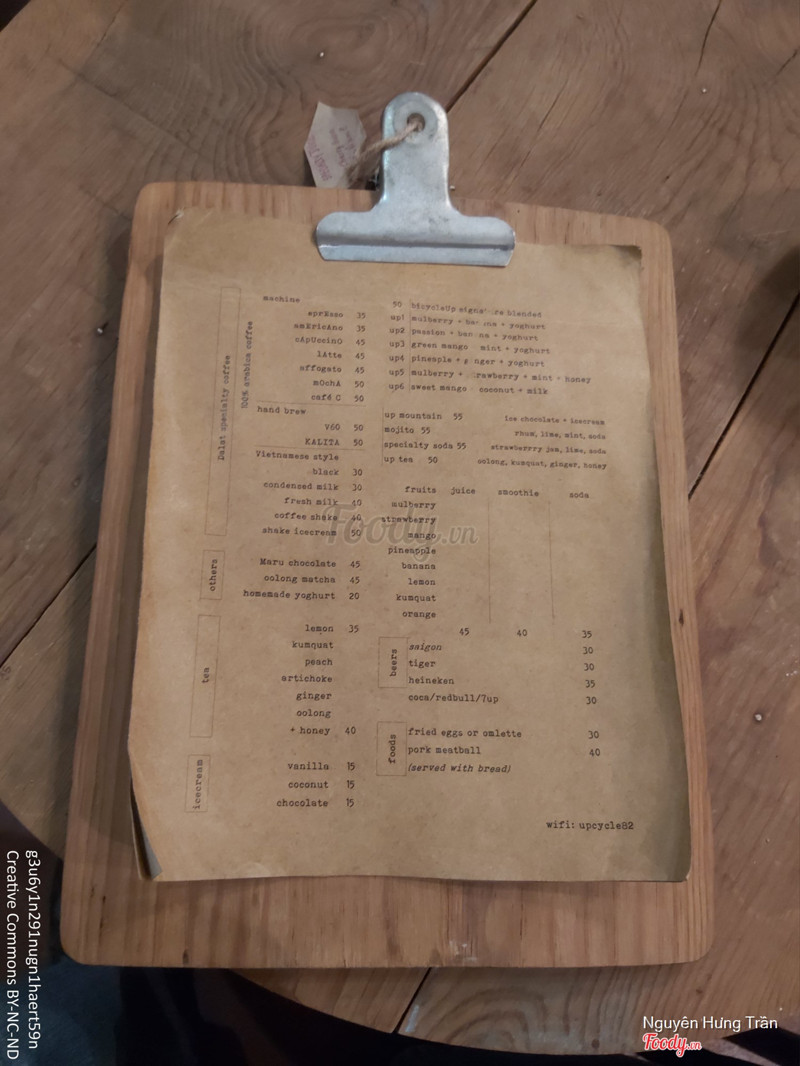 Dalat specialty coffee
100% arabica coffee
machine
esprEsso 35
amEricAno 35
cApUccinO 45
lAtte 45
affogato 45
mOchA 50
café C 50
hand brew
V60 50
KALITA 50
Vietnamese style
black 30
condensed milk 30
fresh milk 40
coffee shake 40
shake icecream 50
others
Maru chocolate 45
oolong matcha 45
homemade yoghurt 20
tea
lemon 35
kumquat
peach
artichoke
ginger
oolong
+ honey 40
icecream
vanilla 15
coconut 15
chocolate 15
50 bicycleUp blended
up1 mulberry + + yoghurt
up2 passion + + yoghurt
up3 green mango mint + yoghurt
up4 pineapple + + yoghurt
up5 mulberry + + mint + honey
up6 sweet mango coconut + milk
up mountain 55 ice chocolate + icecream
mojito 55 rhum, lime, mint, soda
specialty soda 55 strawberrry jam, lime, soda
up tea 50 oolong, kumquat, ginger, honey
fruits juice smoothie soda
mulberry
strawberry
mango
pineapple
banana
lemon
kumquat
orange
45 40 35
beers
saigon 30
tiger 30
heineken 35
coca/redbull/7up 30
foods
fried eggs or omlette 30
pork meatball 40
(served with bread)
wifi: upcycle82
Foody.vn
g3u6y1n291nugn1haert59n
Creative Commons BY-NC-ND
Nguyên Hưng Trần
Foody.vn